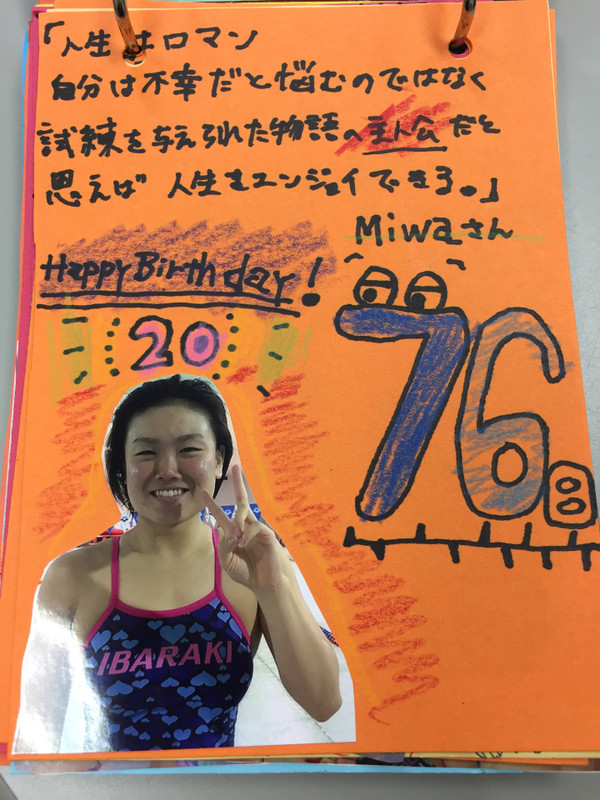 「人生はロマン
自分は不幸だと悩むのではなく
試練を与えられた物語の主人公だと
思えば 人生をエンジョイできる。」
Miwaさん
Happy Birthday!
20
76日
IBARAKI